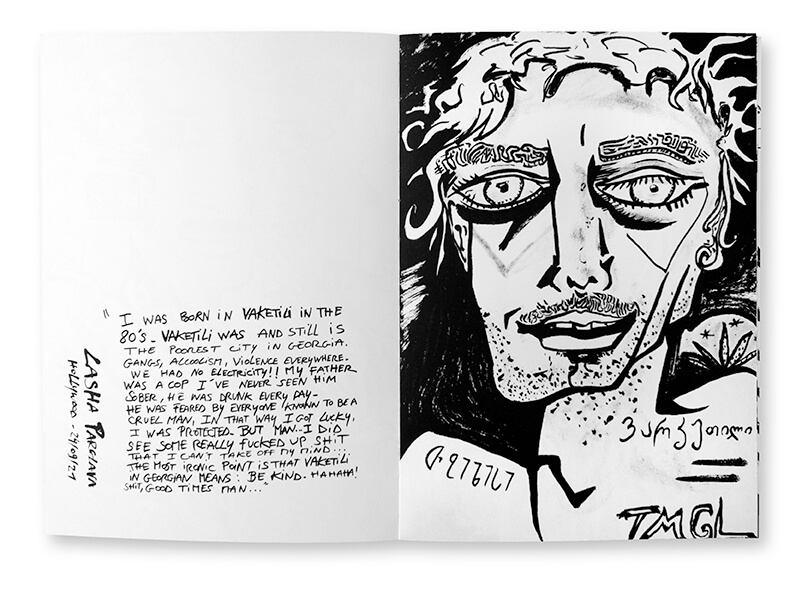 " I WAS BORN IN VAKETILI IN THE
80'S - VAKETILI WAS AND STILL IS
THE POOREST CITY IN GEORGIA.
GANGS, ALCOOLISM, VIOLENCE EVERYWHERE-
WE HAD NO ELECTRICITY!! MY FATHER
WAS A COP I'VE NEVER SEEN HIM
SOBER, HE WAS DRUNK EVERY DAY-
HE WAS FEARED BY EVERYONE KNOWN TO BE A
CRUEL MAN, IN THAT WAY I GOT LUCKY,
I WAS PROTECTED. BUT MAN.. I DID
SEE SOME REALLY FUCKED UP SHIT
THAT I CAN'T TAKE OFF MY MIND...
THE MOST IRONIC POINT IS THAT VAKETILI
IN GEORGIAN MEANS: BE KIND. HAHAHA!
SHIT, GOOD TIMES MAN... "
LASHA PARGHAVA
HOLLYWOOD - 29/09/21
ვარკეთილი
TMGL